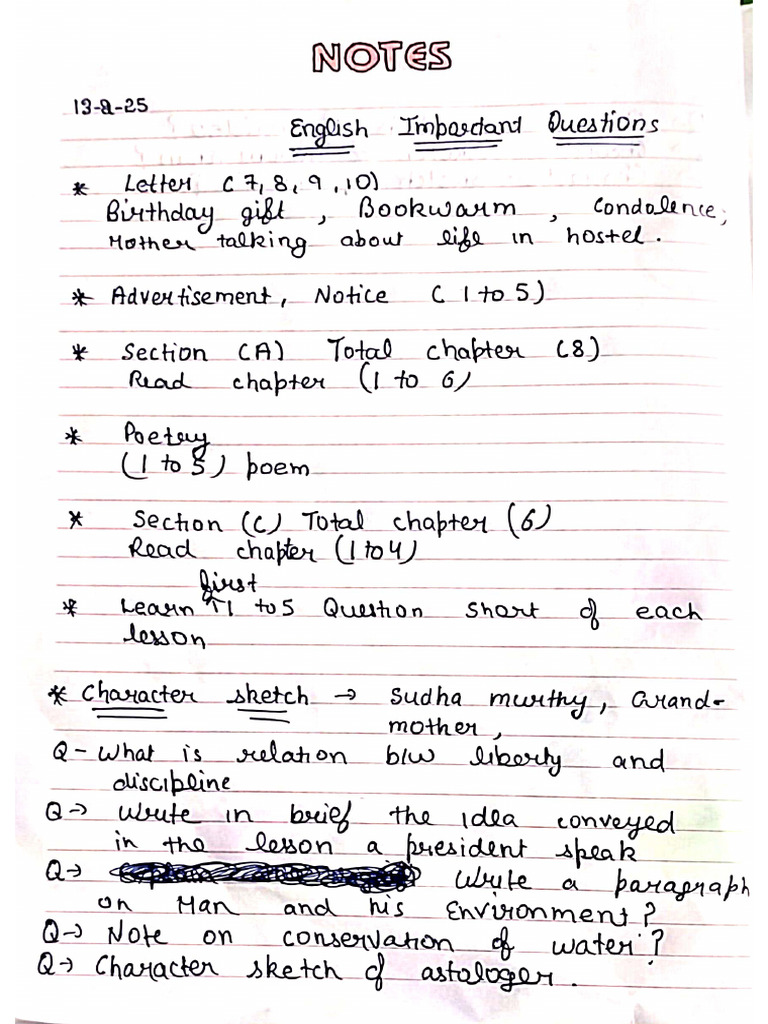 NOTES
13-2-25
English Impordant Questions
* Letter (7, 8, 9, 10)
Birthday gift, Bookwarm, Condolence,
Mother talking about life in hostel.
* Advertisement, Notice (1 to 5)
* Section (A) Total chapter (8)
Read chapter (1 to 6)
* Poetry
(1 to 5) poem
* Section (C) Total chapter (6)
Read chapter (1 to 4)
first
* Learn ↑ 1 to 5 Question short of each
lesson
* Character sketch → Sudha murthy, Grand-
mother,
Q - What is relation b/w liberty and
discipline
Q → Write in brief the idea conveyed
in the lesson a president speak
Q → Write a paragraph
on Man and his Environment?
Q → Note on conservation of water?
Q → Character sketch of astaloger.